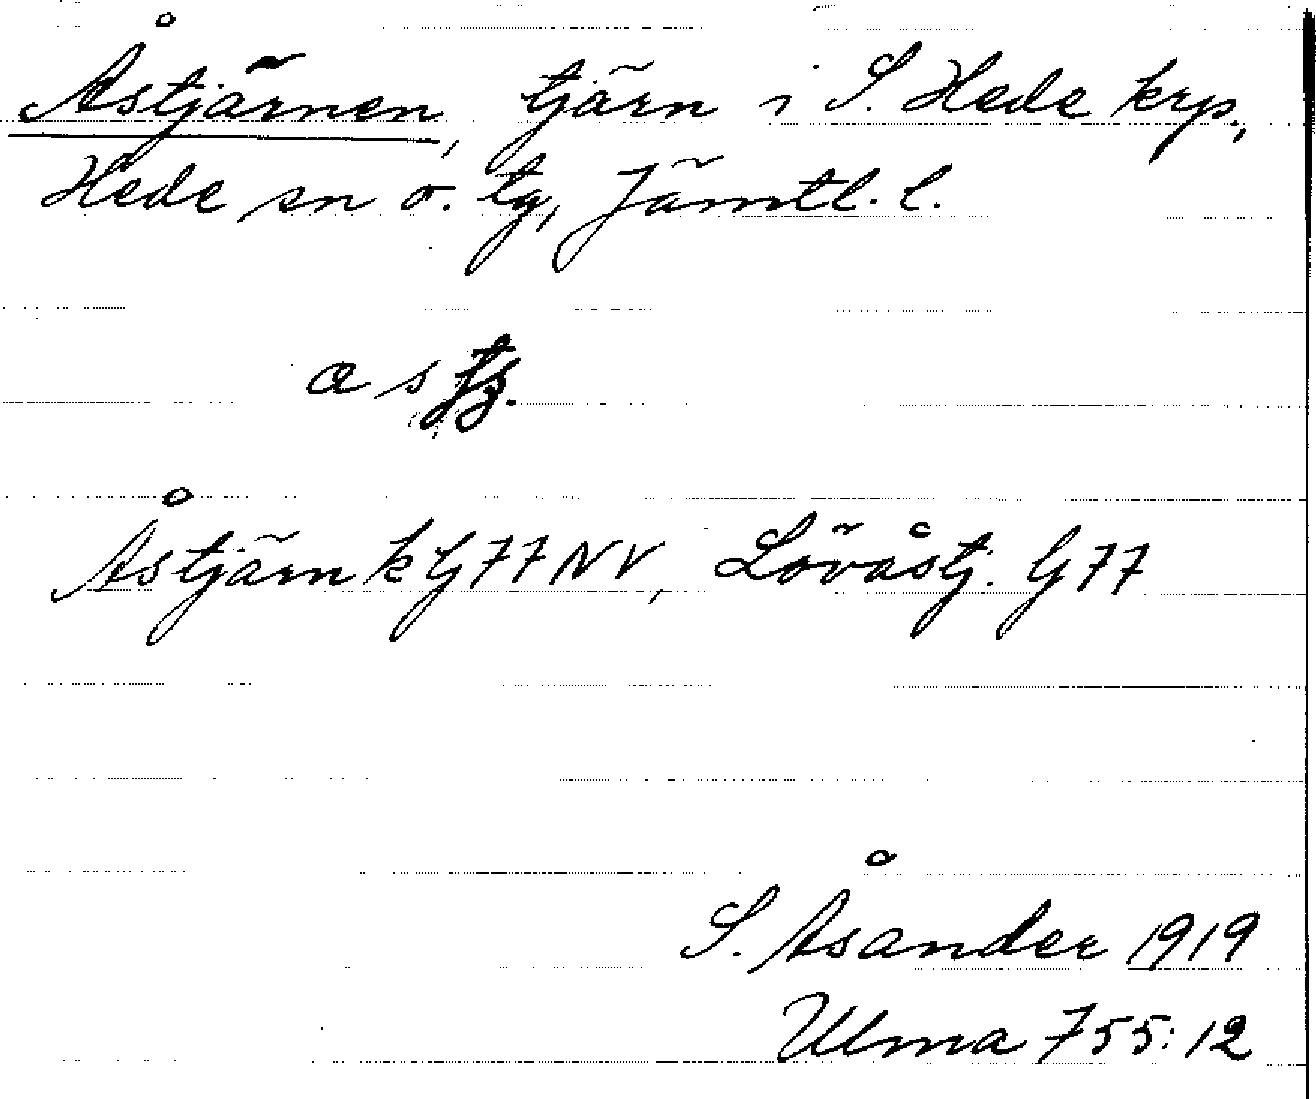 Åstjärnen, tjärn i S. Hede krp.,
Hede sn o. tg, Jämtl. l.
Åstjärn k G77NV, Lövåstj. G77
S. Åsander 1919
Ulma 755:12